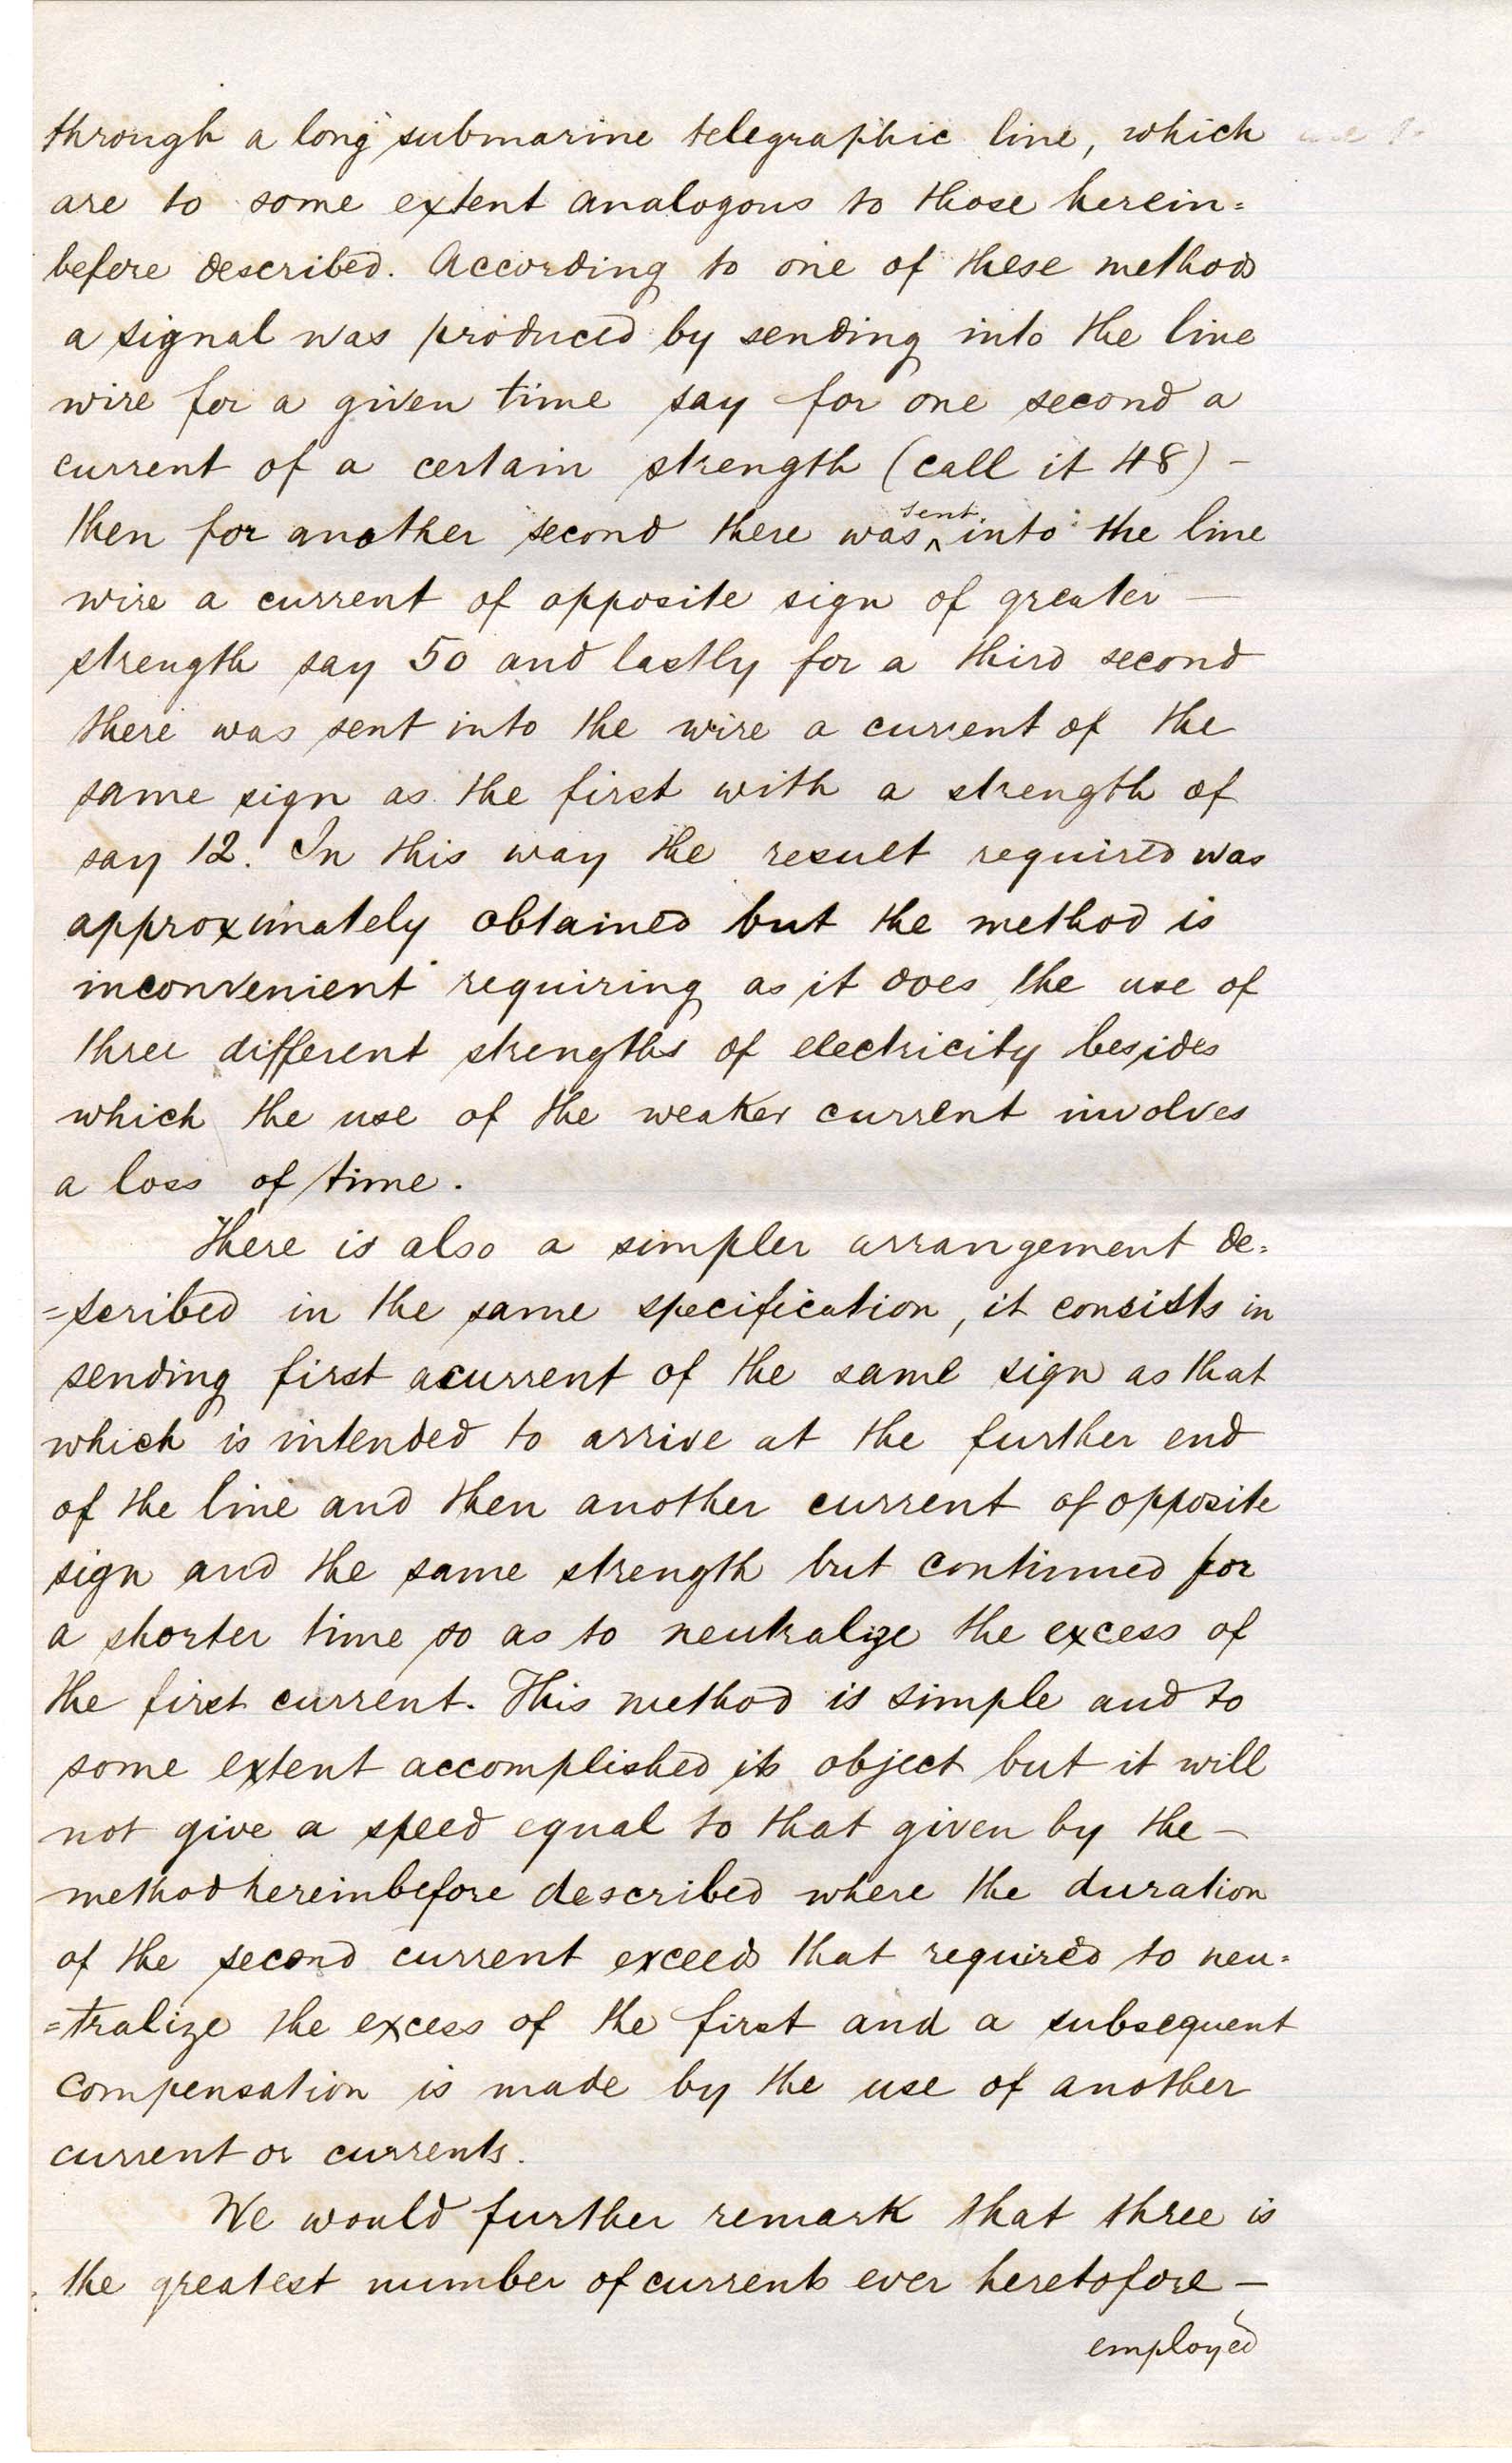 through a long submarine telegraphic line, which
are to some extent analogous to those herein=
before described. According to one of these methods
a signal was produced by sending into the line
wire for a given time say for one second a
current of a certain strength (call it 48) -
then for another second there was sent into the line
wire a current of opposite sign of greater -
strength say 50 and lastly for a third second
there was sent into the wire a current of the
same sign as the first with a strength of
say 12. In this way the result required was
approximately obtained but the method is
inconvenient requiring as it does the use of
three different strengths of electricity besides
which the use of the weaker current involves
a loss of time.
There is also a simpler arrangement de=
=scribed in the same specification, it consists in
sending first a current of the same sign as that
which is intended to arrive at the further end
of the line and then another current of opposite
sign and the same strength but continued for
a shorter time so as to neutralize the excess of
the first current. This method is simple and to
some extent accomplished its object but it will
not give a speed equal to that given by the -
method hereinbefore described where the duration
of the second current exceeds that required to neu=
=tralize the excess of the first and a subsequent
compensation is made by the use of another
current or currents.
We would further remark that three is
the greatest number of currents ever heretofore -
employed